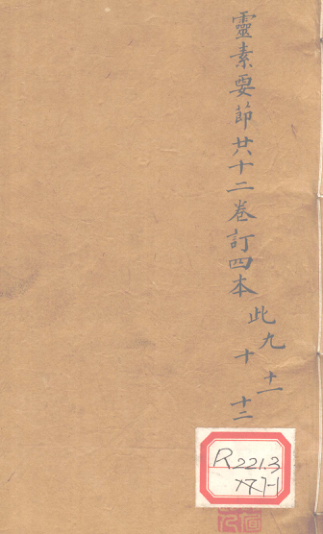 靈素要節共十二卷訂四本
此九
十
十一
十二
R2213